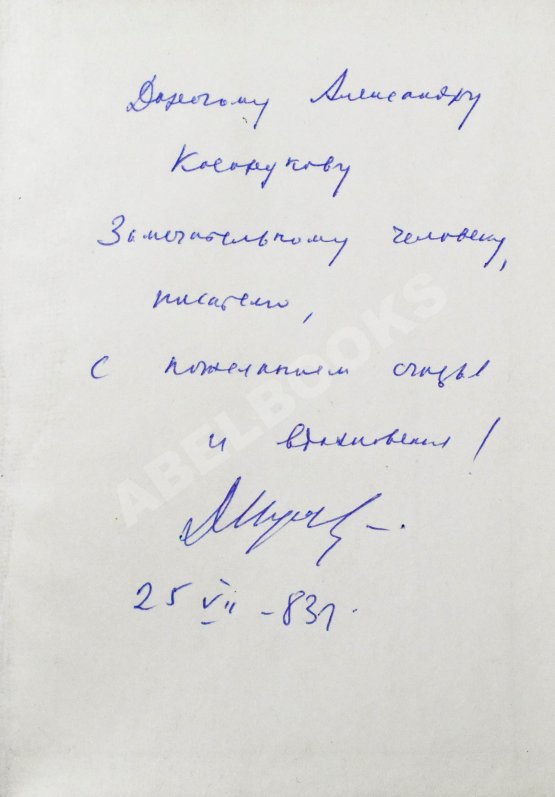 Дорогому Александру
Косорукову
Замечательному человеку,
писателю,
с пожеланием счастья
и вдохновения!
25 VII - 83 г.
ABELBOOKS